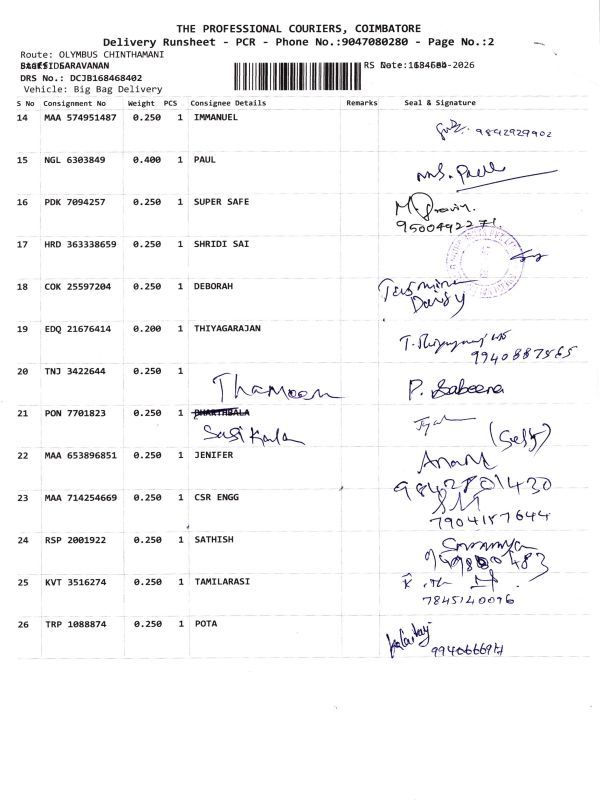 THE PROFESSIONAL COURIERS, COIMBATORE
Delivery Runsheet - PCR - Phone No.:9047080280 - Page No.:2
Route: OLYMBUS CHINTHAMANI
SARAVANAN
DRS No.: DCJB168468402
Vehicle: Big Bag Delivery
S No Consignment No Weight PCS Consignee Details Remarks Seal & Signature
14 MAA 574951487 0.250 1 IMMANUEL
9842929902
15 NGL 6303849 0.400 1 PAUL
Mrs. Paul
16 PDK 7094257 0.250 1 SUPER SAFE
9500492271
17 HRD 363338659 0.250 1 SHRIDI SAI
18 COK 25597204 0.250 1 DEBORAH
Jasmine
Daisy
19 EDQ 21676414 0.200 1 THIYAGARAJAN
9940887565
20 TNJ 3422644 0.250 1
Thameen P. Sabeena
21 PON 7701823 0.250 1
Sasi Kala (Self)
22 MAA 653896851 0.250 1 JENIFER
Anand
9842801430
23 MAA 714254669 0.250 1 CSR ENGG
7904187644
24 RSP 2001922 0.250 1 SATHISH
25 KVT 3516274 0.250 1 TAMILARASI
7845140096
26 TRP 1088874 0.250 1 POTA